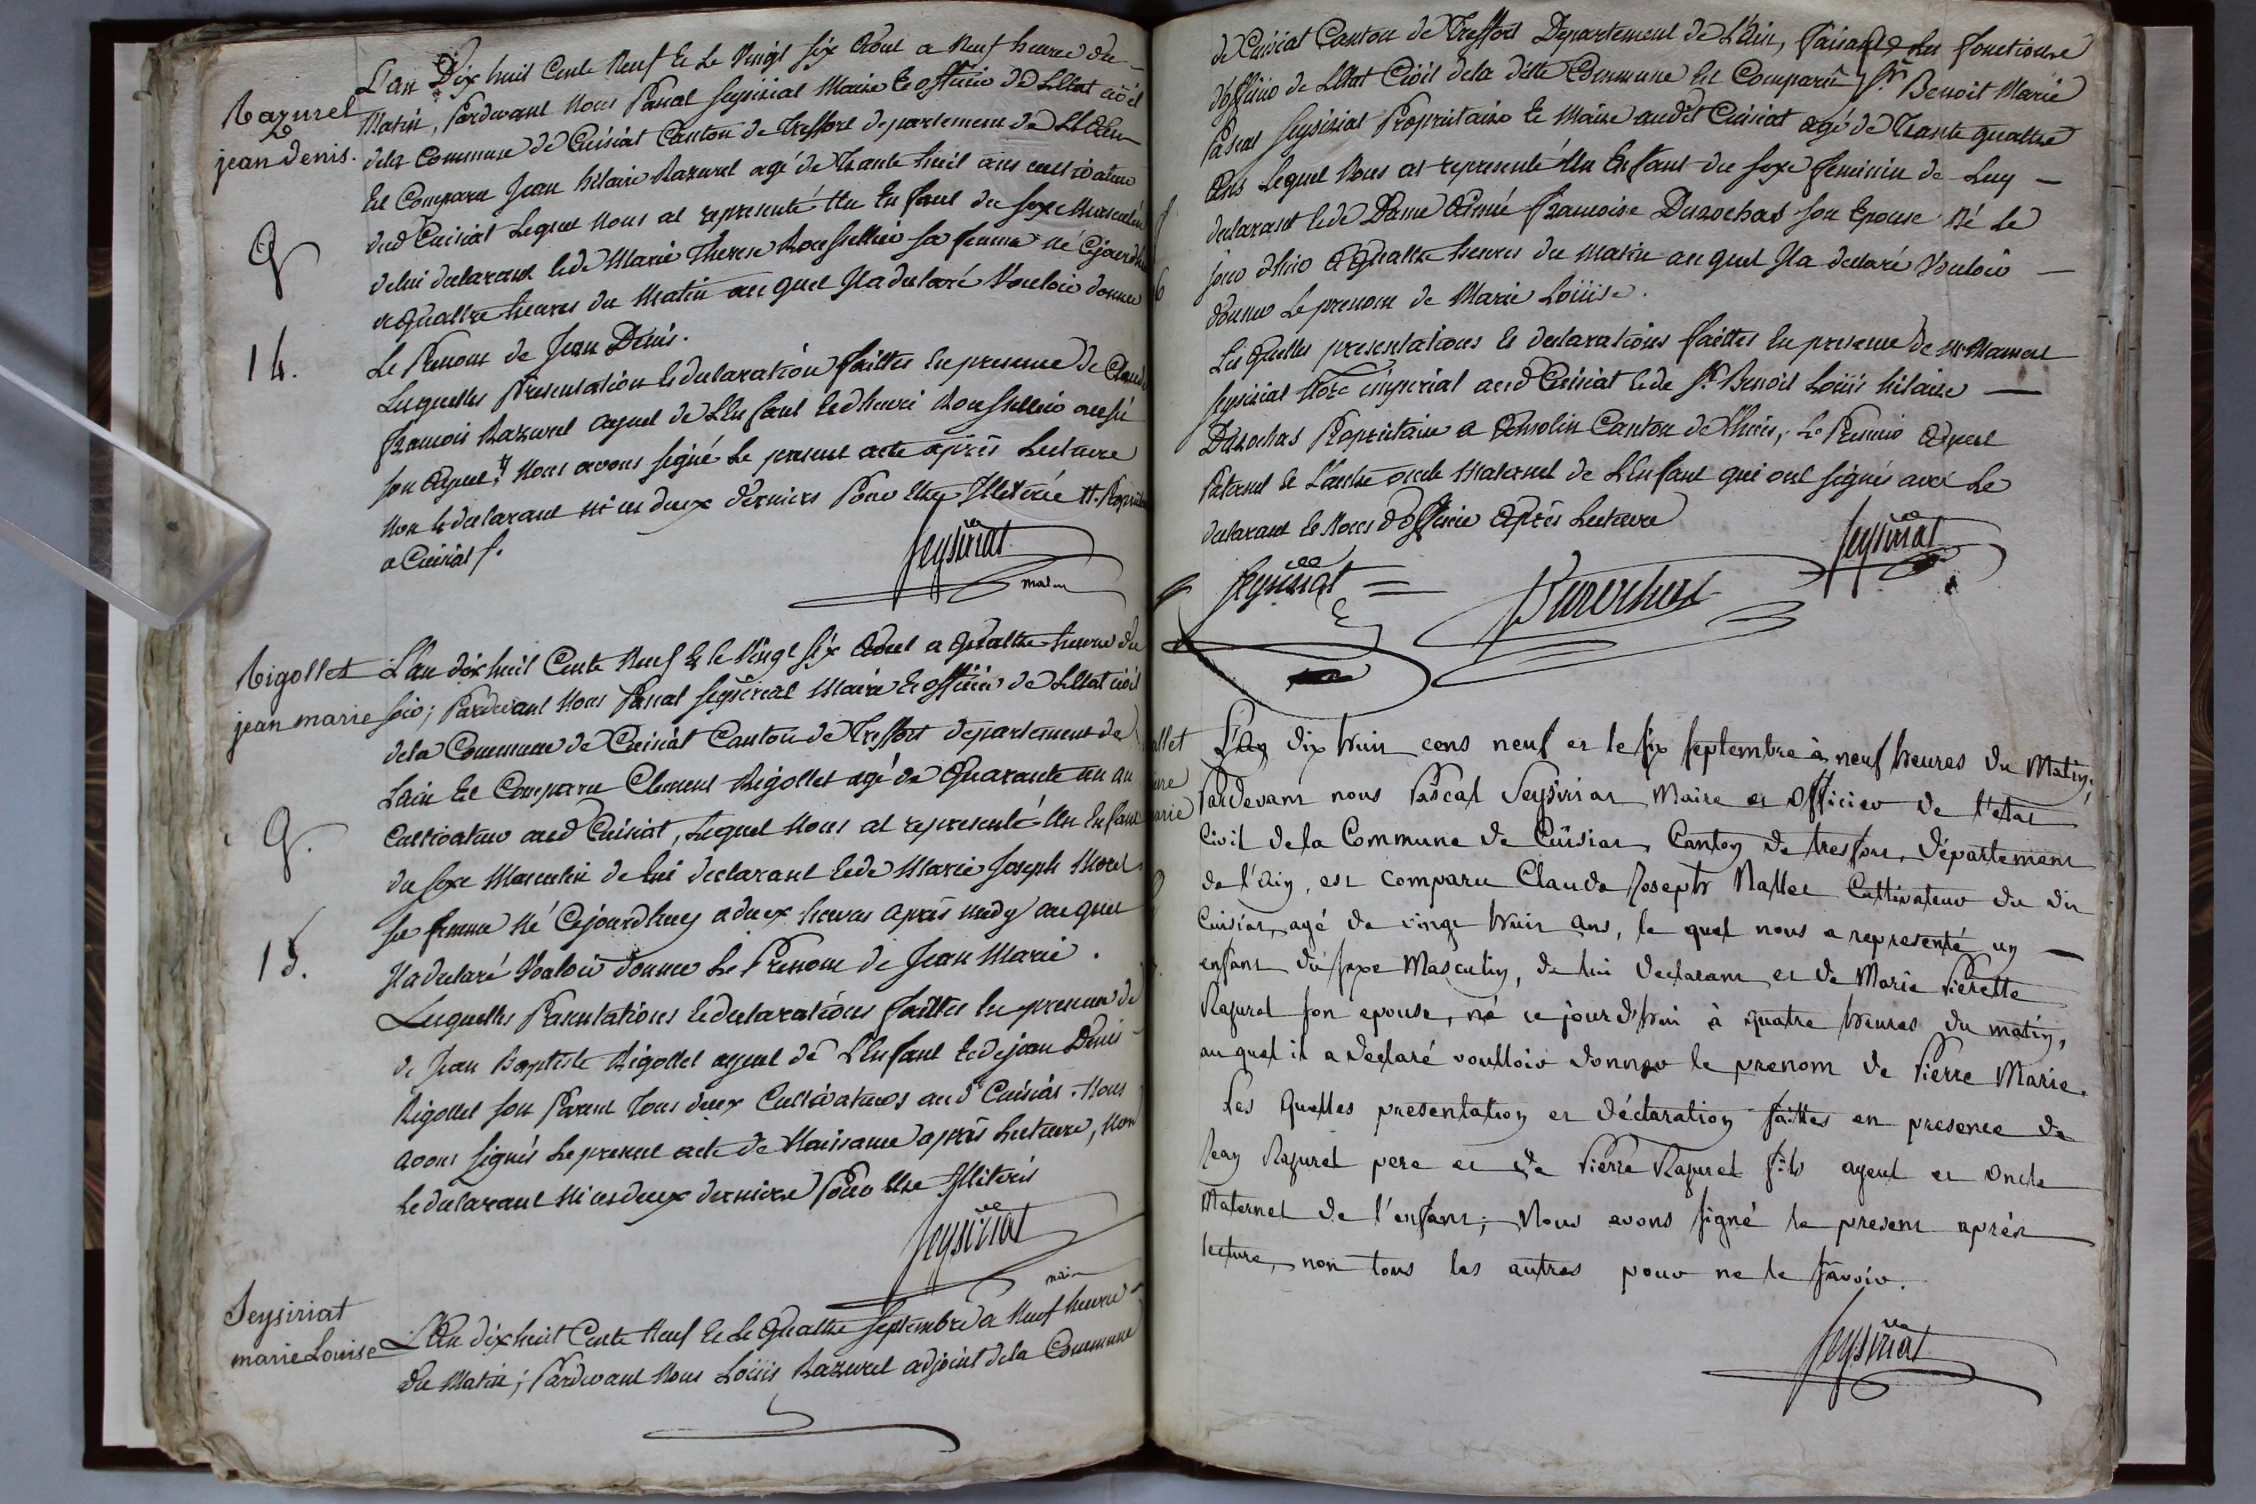 Razurel
jean denis.
G
14.
L'an Dix huit Cents Neuf Et Le Vingt Six Aout a Neuf heures du
Matin, Pardevant Nous Pascal Seysiriat Maire Et officier de L'Etat civil
dela Commune de Cuisiat Canton de Treffort departement de L'Ain
Est Comparu Jean hilaire Razurel agé de Trante huit ans cultivateur
aud Cuisiat Lequel Nous at representé Un Enfant du Sexe Masculin
delui declarant Et de Marie Therese Rousselleir sa femme né Cejourdhui
a Quattre heures du Matin au quel Il a declaré Vouloir donner
Le Prenom de Jean Denis.
Lesquelles Presentation Et declaration faittes En presence de Claude
François Razurel ayeul de L'Enfant Et dhenri Rousselleir aussi
son ayeul # Nous avons signé Le present acte après Lecture
Non Le declarant ni ces deux derniers Pour Etre Illitérés #. Propriétaires
a Cuisiat.
Seysiriat
maire
Rigollet
jean marie
G.
15.
L'an dix huit Cents Neuf Et le Vingt Six Aout a Quattre heures du
soir; Pardevant Nous Pascal Seysiriat Maire Et officier de L'Etat civil
dela Commune de Cuisiat Canton de Treffort departement de
L'ain Est Comparu Clement Rigollet agé de Quarante un an
Cultivateur aud Cuisiat, Lequel Nous at representé Un Enfant
du Sexe Masculin de lui declarant Et de Marie Joseph Morel
sa femme Né Cejourdhuy a deux heures après midy au quel
Il a declaré Vouloir donner Le Prenom de Jean Marie.
Lesquelles Presentations Et declarations faittes En presence de
de Jean Baptiste Rigollet ayeul de L'Enfant Et de jean Denis
Rigollet son Parent Tous deux Cultivateurs aud Cuisiat. Nous
avons signés Le present acte de Naissance après Lecture, Non
Le declarant Ni ces deux derniers Pour Etre Illiterés
Seysiriat
maire
Seysiriat
marie Louise
L'An dix huit Cents Neuf Et Le Quattre Septembre a Neuf heures
du Matin; Pardevant Nous Loüis Razurel adjoint dela Commune
de Cuisiat Canton de Treffort Departement de L'Ain, faisant Les fonctions
d'officier de L'Etat Civil dela ditte Commune Est Comparu Sr. Benoit Marie
Pascal Seysiriat Propriétaire Et Maire audit Cuisiat agé de Trante quattre
ans Lequel Nous at representé Un Enfant du Sexe feminin de Luy
declarant Et de Dame Aimée Françoise Durochat son Epouse Né Le
jour dhier a Quattre heures du Matin au quel Il a declaré Vouloir
donner Le prenom de Marie Loüise.
Les Quelles presentations Et declarations faittes En presence de Mr
Seysiriat Notre imperial aud Cuisiat Et de Sr Benoit Loüis hilaire
Durochas Propriétaire a Canton de Le Premier Ayeul
Paternel Et L'autre oncle Maternel de L'Enfant qui ont signés avec Le
declarant Et Nous dofficier Après Lecture
Seysiriat
Durochat
Seysiriat
allet
arie
L'an dix huit cens neuf et le six septembre à neuf heures du Matin;
Pardevant nous Pascal Seysiriat Maire et Officier de l'etat
Civil de la Commune de Cuisiat, Canton de tresfort, Département
de l'Ain, est comparu Claude Joseph Nallet Cultivateur du dit
Cuisiat, agé de vingt huit ans, le quel nous a representé un
enfant du sexe Masculin, de lui declarant et de Marie Pierette
Razurel son epouse, né ce jourd'hui à quatre heures du matin,
au quel il a declaré voulloir donner le prenom de Pierre Marie.
Les Quelles presentation et déclaration faittes en presence de
Jean Razurel pere et de Pierre Razurel fils ayeul et oncle
Maternel de l'enfant; Nous avons signé le present après
lecture, non tous les autres pour ne le savoir.
Seysiriat